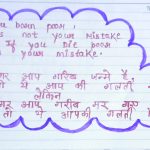 you born poor,
is not your mistake
If you Die poor
your mistake.
आप गरीब जन्मे है
ये आप की गलती
लेकिन
आप गरीब मर गए
तो ये आपकी गलती